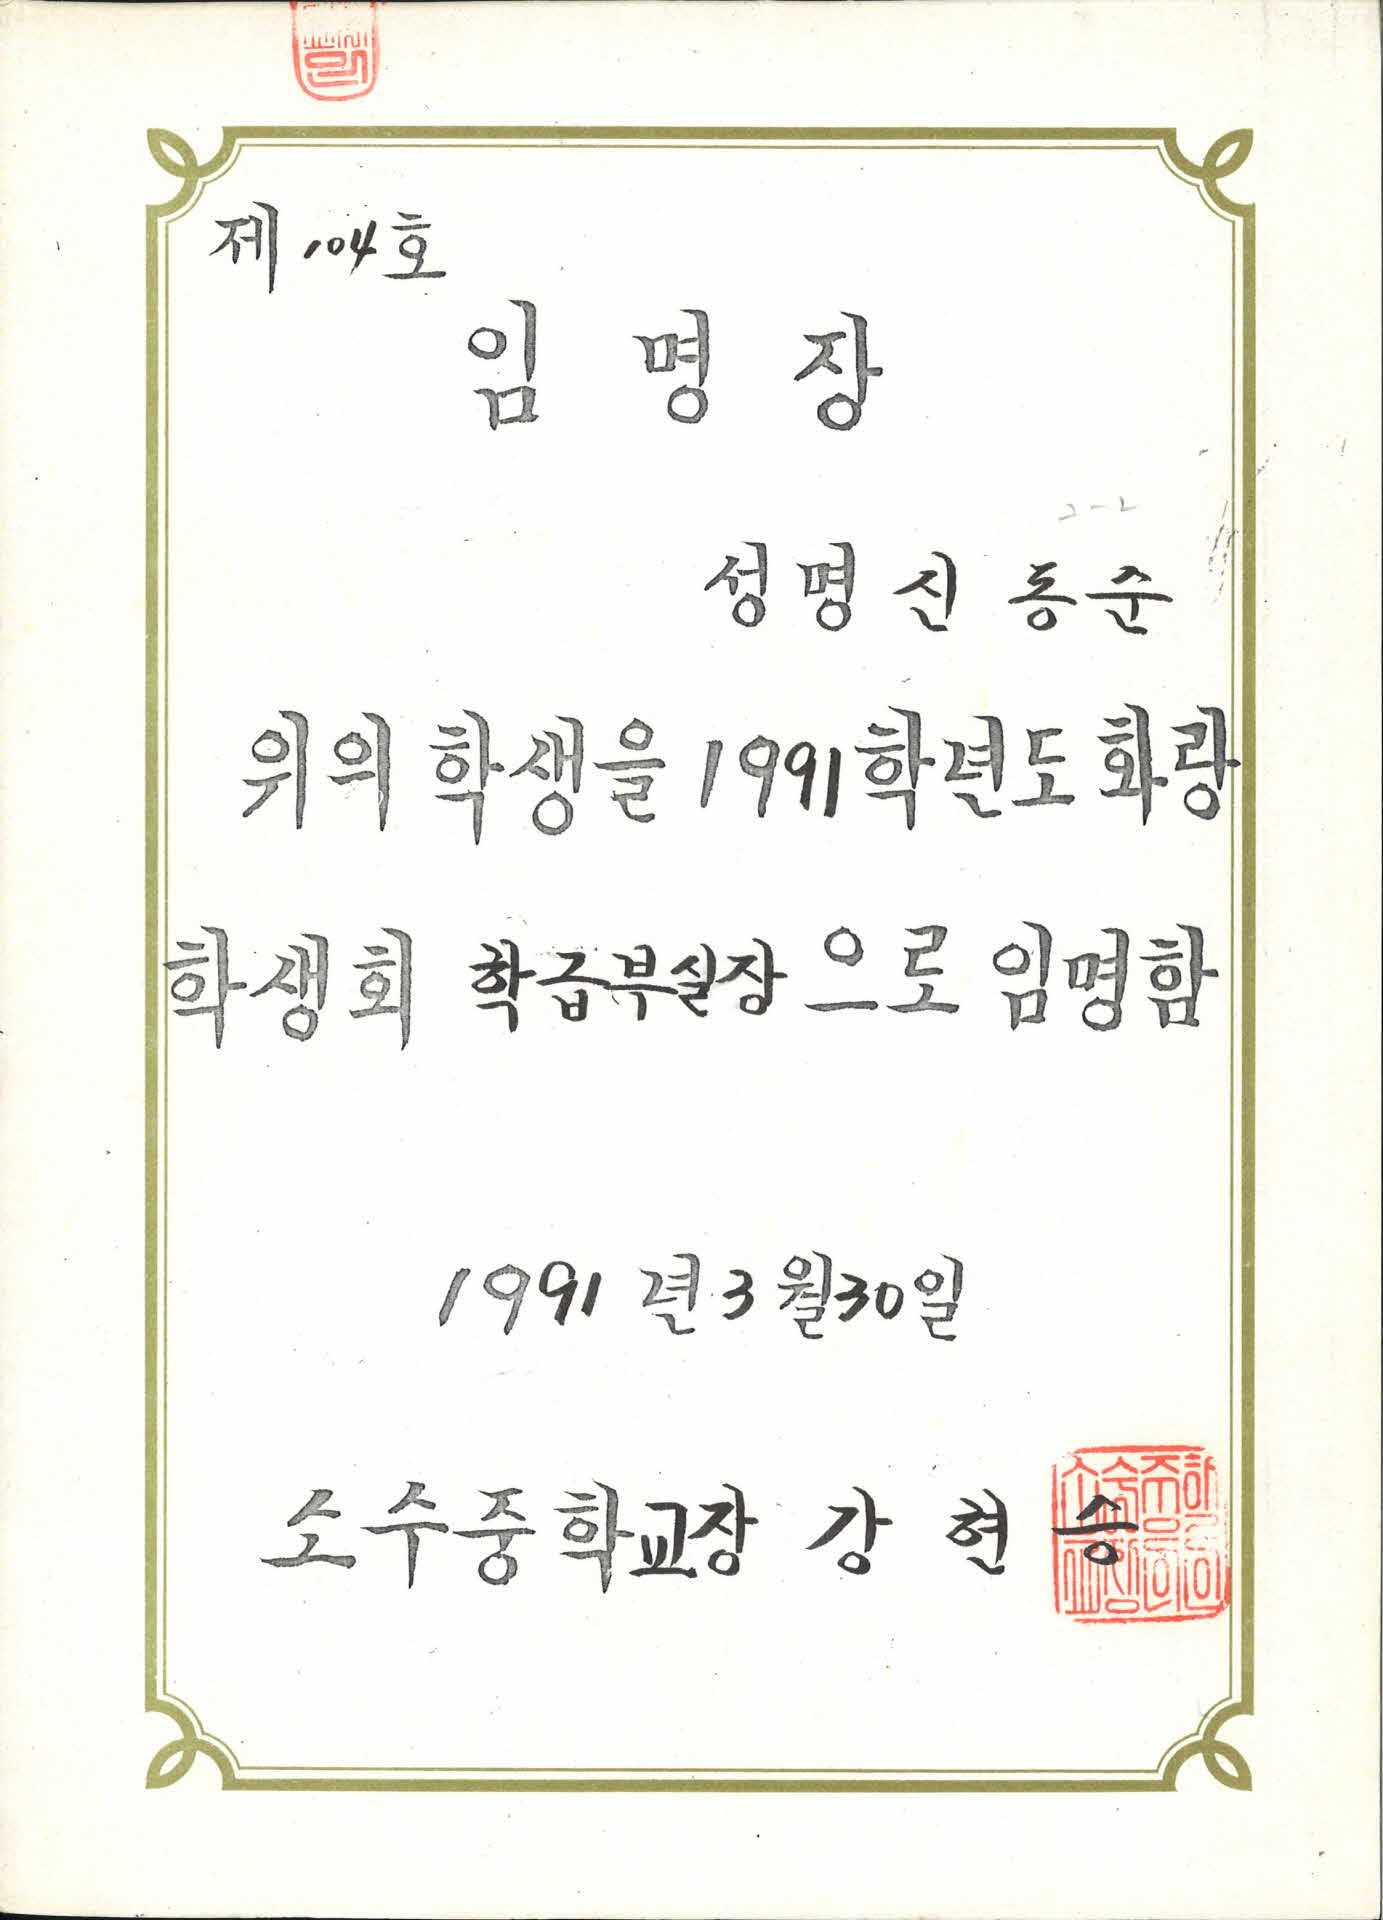 제 104호
임 명 장
2-2
성명 신 동순
위의 학생을 1991학년도 화랑
학생회 학급부실장 으로 임명함
1991년 3월 30일
소수중학교장 강 현 승